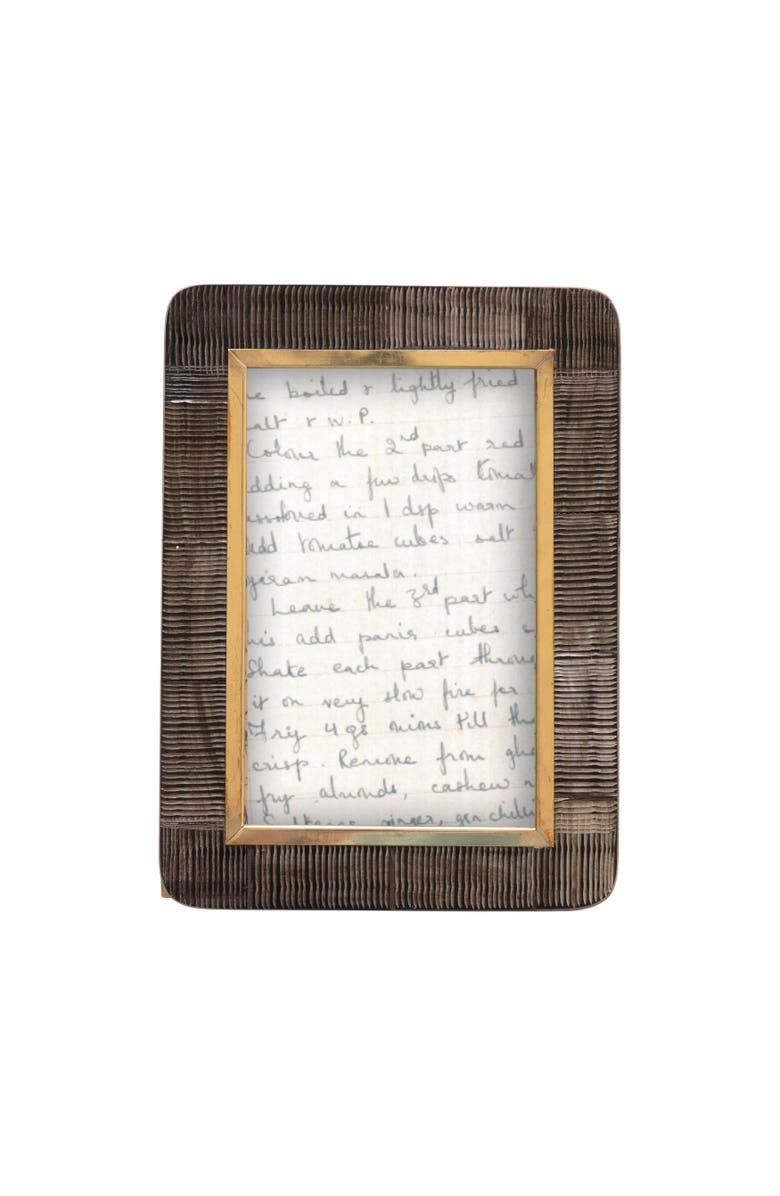 e boiled & lightly fried
alt & W.P.
Colour the 2nd part red
dding a few drops tomat
ssolved in 1 dsp warm
add tomatoe cubes salt
garam masala.
Leave the 3rd part whi
his add panir cubes s
Shake each part throu
it on very slow fire for
Fry 4 gs onions till th
crisp. Remove from ghe
fry almonds, cashew n
ginger, grn chilli